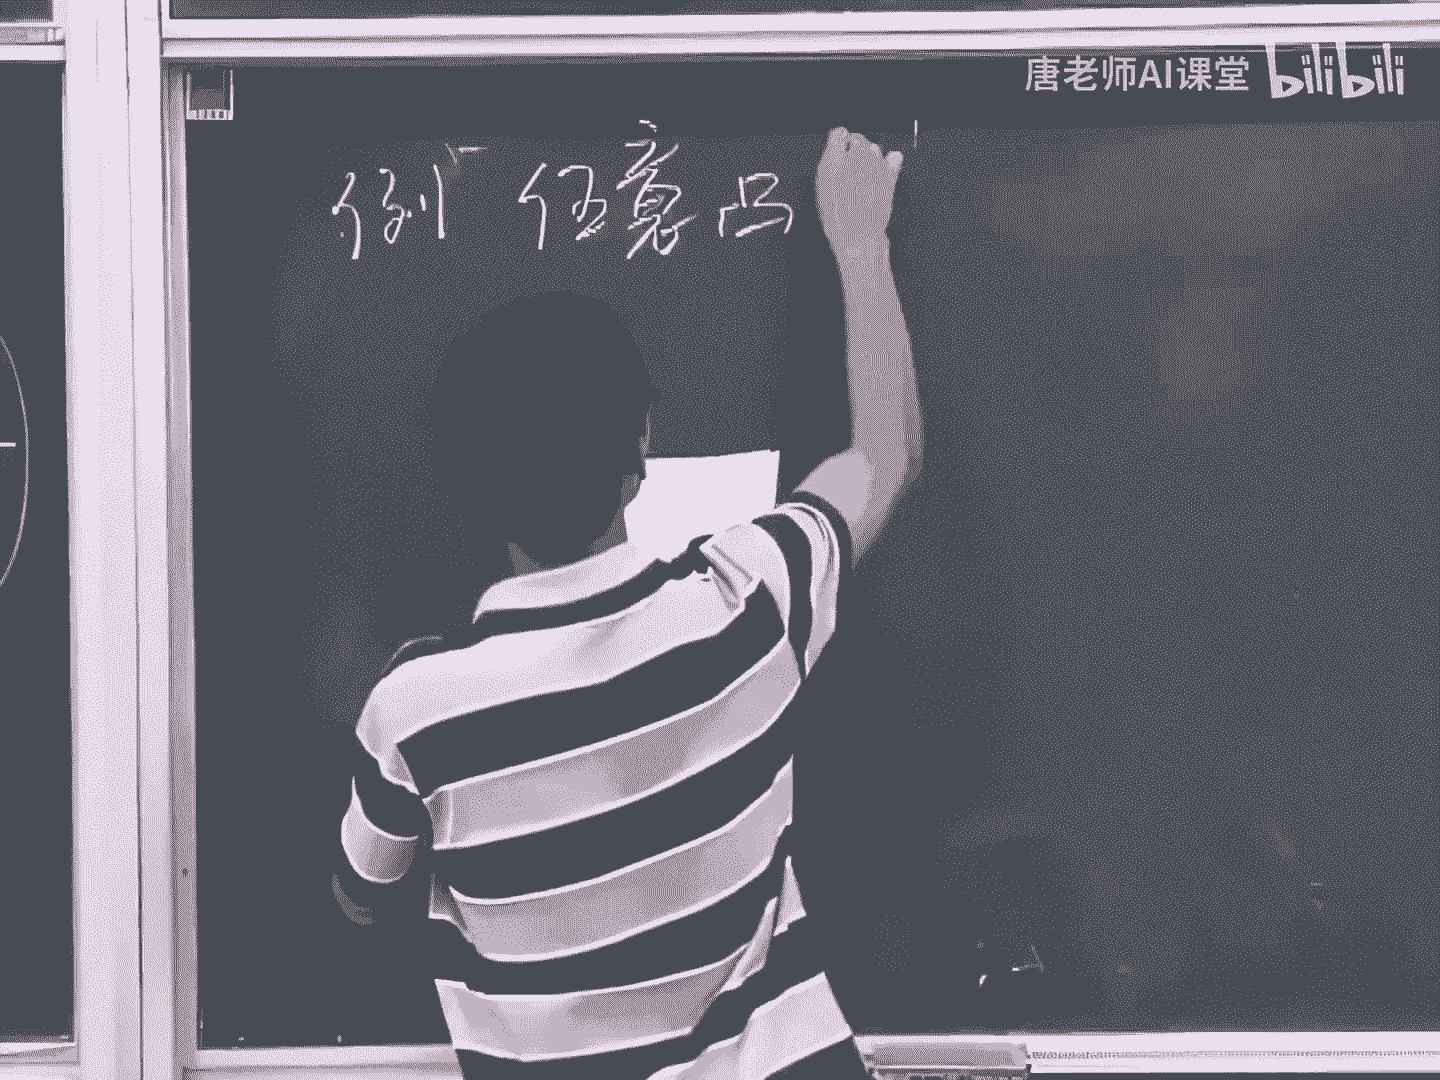 唐老师AI课堂 bilibili
例 任意凸